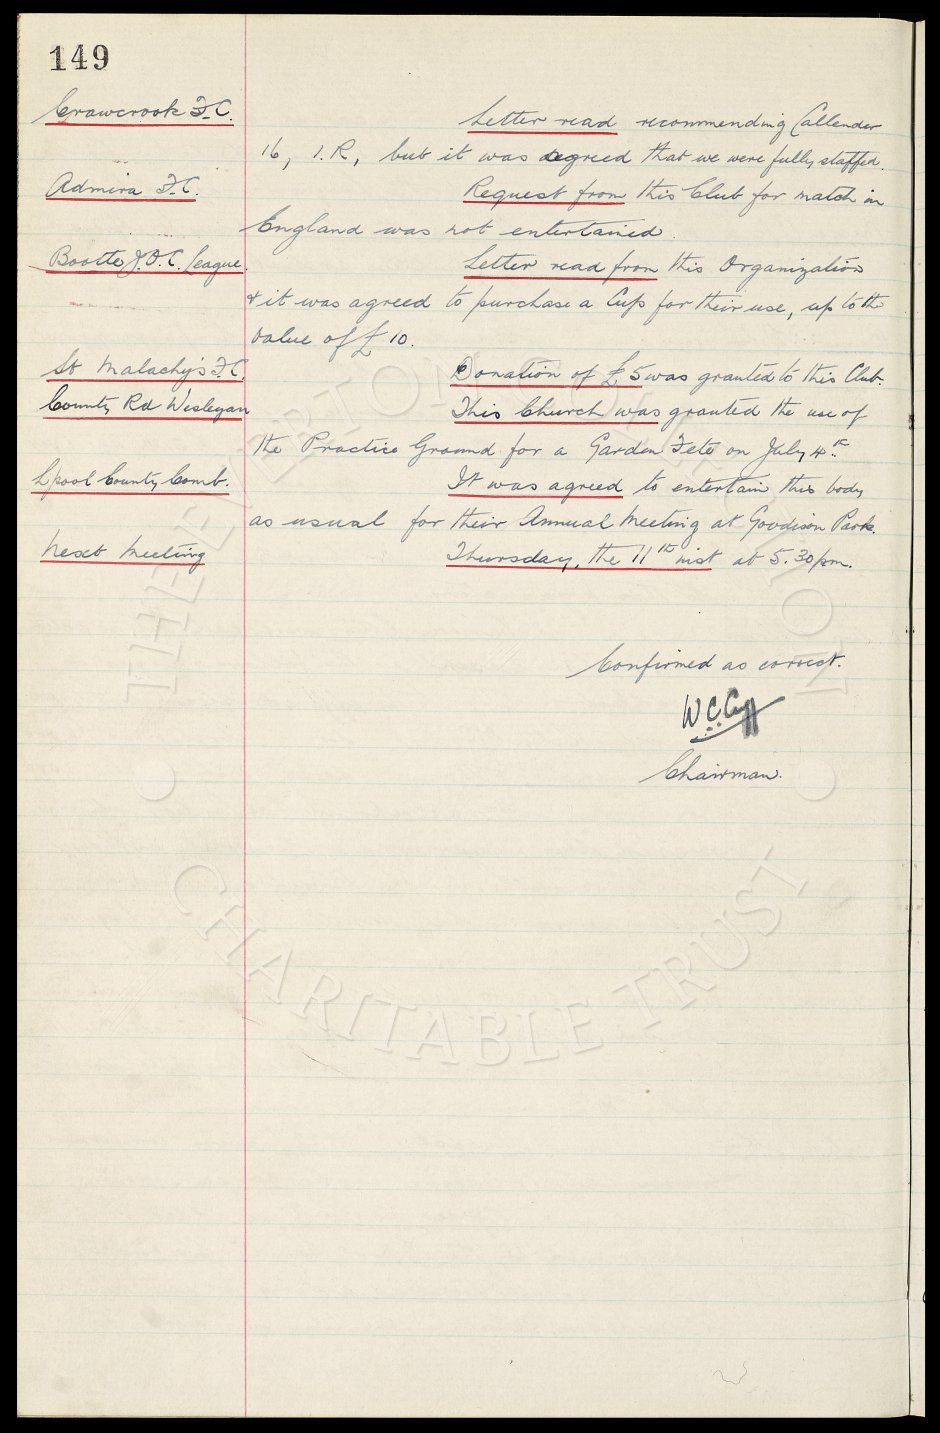 149
Crawcrook F.C.
Letter read recommending Callender
16, I.R, but it was agreed that we were fully staffed.
Admira F.C.
Request from this Club for match in
England was not entertained.
Bootle J.O.C. League.
Letter read from this Organization
& it was agreed to purchase a Cup for their use, up to the
value of £10.
St Malachy's F.C.
Donation of £5 was granted to this Club.
County Rd Wesleyan
This Church was granted the use of
the Practice Ground for a Garden Fete on July 4th.
Lpool County Comb.
It was agreed to entertain this body
as usual for their Annual Meeting at Goodison Park.
Next Meeting
Thursday, the 11th inst at 5.30 pm.
Confirmed as correct.
W C Cuff
Chairman.
THE EVERTON COLLECTION
CHARITABLE TRUST